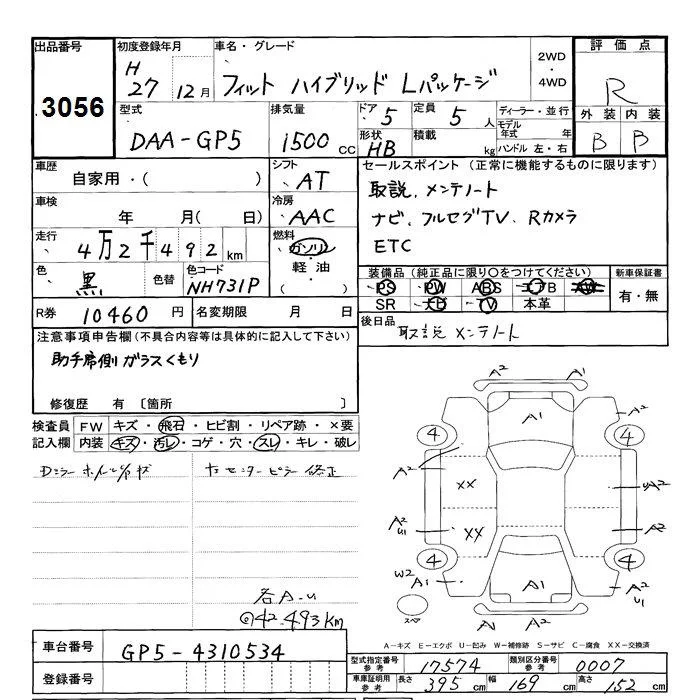 出品番号 初度登録年月 車名・グレード 評価点
3056 H 27年 12月 フィット ハイブリッド Lパッケージ 2WD ・ 4WD R
型式 排気量 ドア 5 定員 5人 ディーラー・並行 外装 内装
DAA-GP5 1500cc 形状 HB 積載 kg モデル年式 年 ハンドル 左・右 B B
車歴 自家用・( ) シフト AT セールスポイント (正常に機能するものに限ります)
車検 年 月( 日) 冷房 AAC 取説、メンテノート
ナビ、フルセグTV、Rカメラ
ETC
走行 4万2千492km 燃料 ガソリン ・ 軽油 ・( )
色 黒 色替 色コード NH731P
装備品 (純正品に限り○をつけてください) 新車保証書
PS PW ABS エアB AW 有・無
SR ナビ TV 本革
R券 10460円 名変期限 月 日
後日品 取説 メンテノート
注意事項申告欄(不具合内容等は具体的に記入して下さい)
助手席側ガラスくもり
修復歴 有 〔箇所 〕
検査員記入欄 FW キズ・飛石・ヒビ割・リペア跡・×要
内装 キズ・汚レ・コゲ・穴・スレ・キレ・破レ
Dミラー センターピラー 修正
各A-U
@42.493Km
A2 A1
A1 A2
4 4
A2 XX A2
A2 U1 XX A2
4 4
W2 A1 A1 A2 U1
スペア A1 A2
A-キズ E-エクボ U-凹み W-補修跡 S-サビ C-腐食 XX-交換済
車台番号 GP5-4310534
登録番号
型式指定番号 参考 17574 類別区分番号 参考 0007
車庫証明用 参考 長さ 395cm 幅 169cm 高さ 152cm